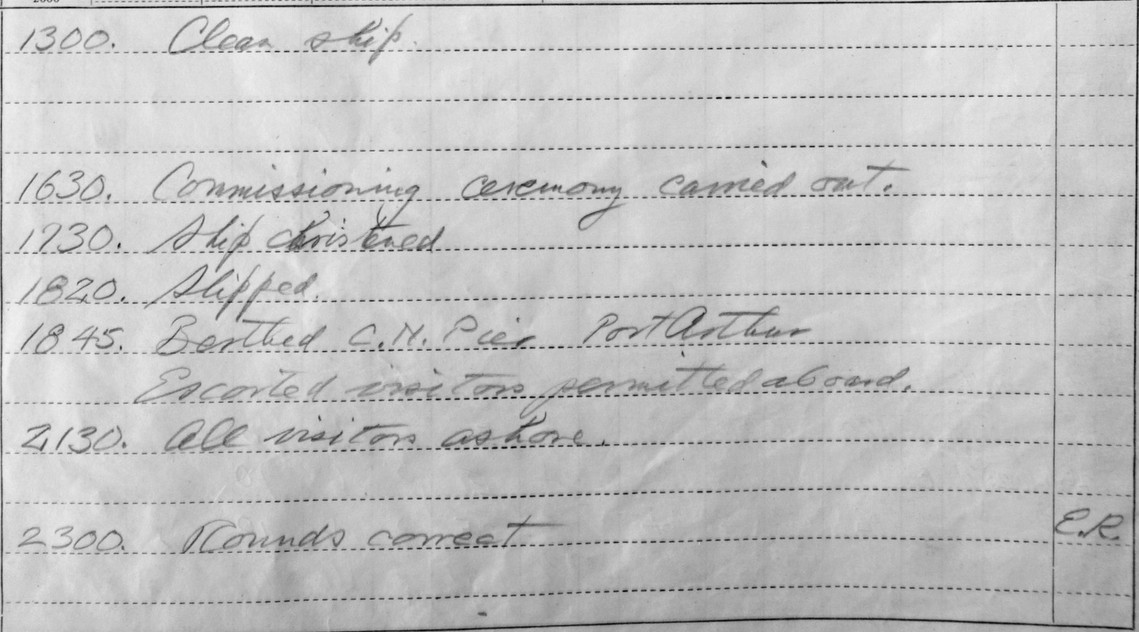 1300. Clean ship.
1630. Commissioning ceremony carried out.
1730. Ship christened
1820. Slipped.
1845. Berthed C.N. Pier Port Arthur
Escorted visitors permitted aboard.
2130. All visitors ashore.
2300. Rounds correct E.R.